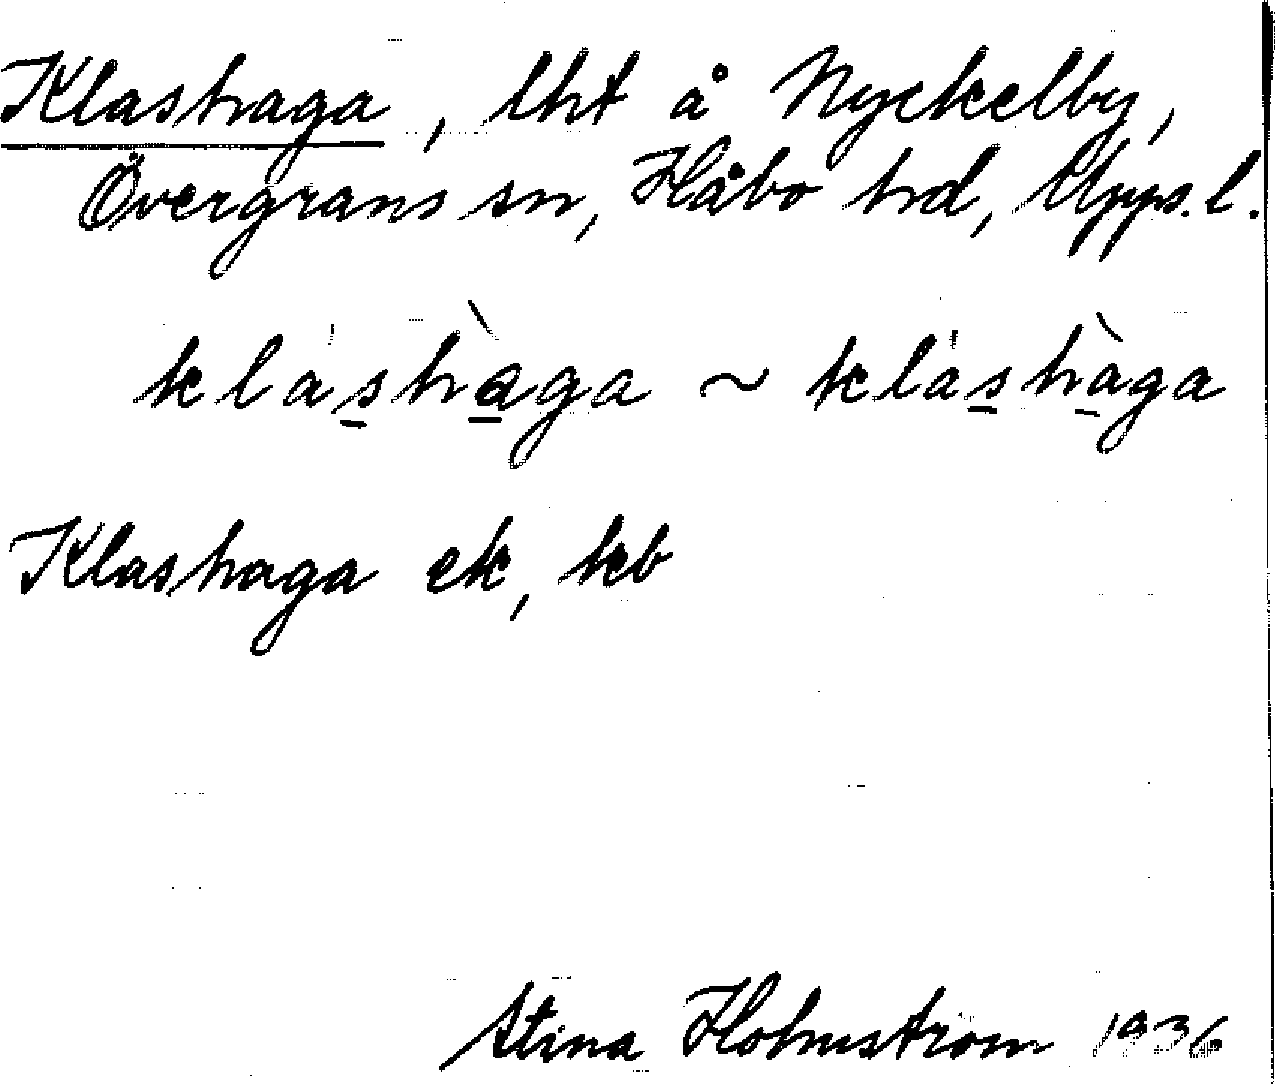 Klashaga, lht å Nyckelby,
Övergrans sn, Håbo hd, Upps. l.
kláshàga ~ kláshàga
Klashaga ek, kb
Stina Holmström 1936